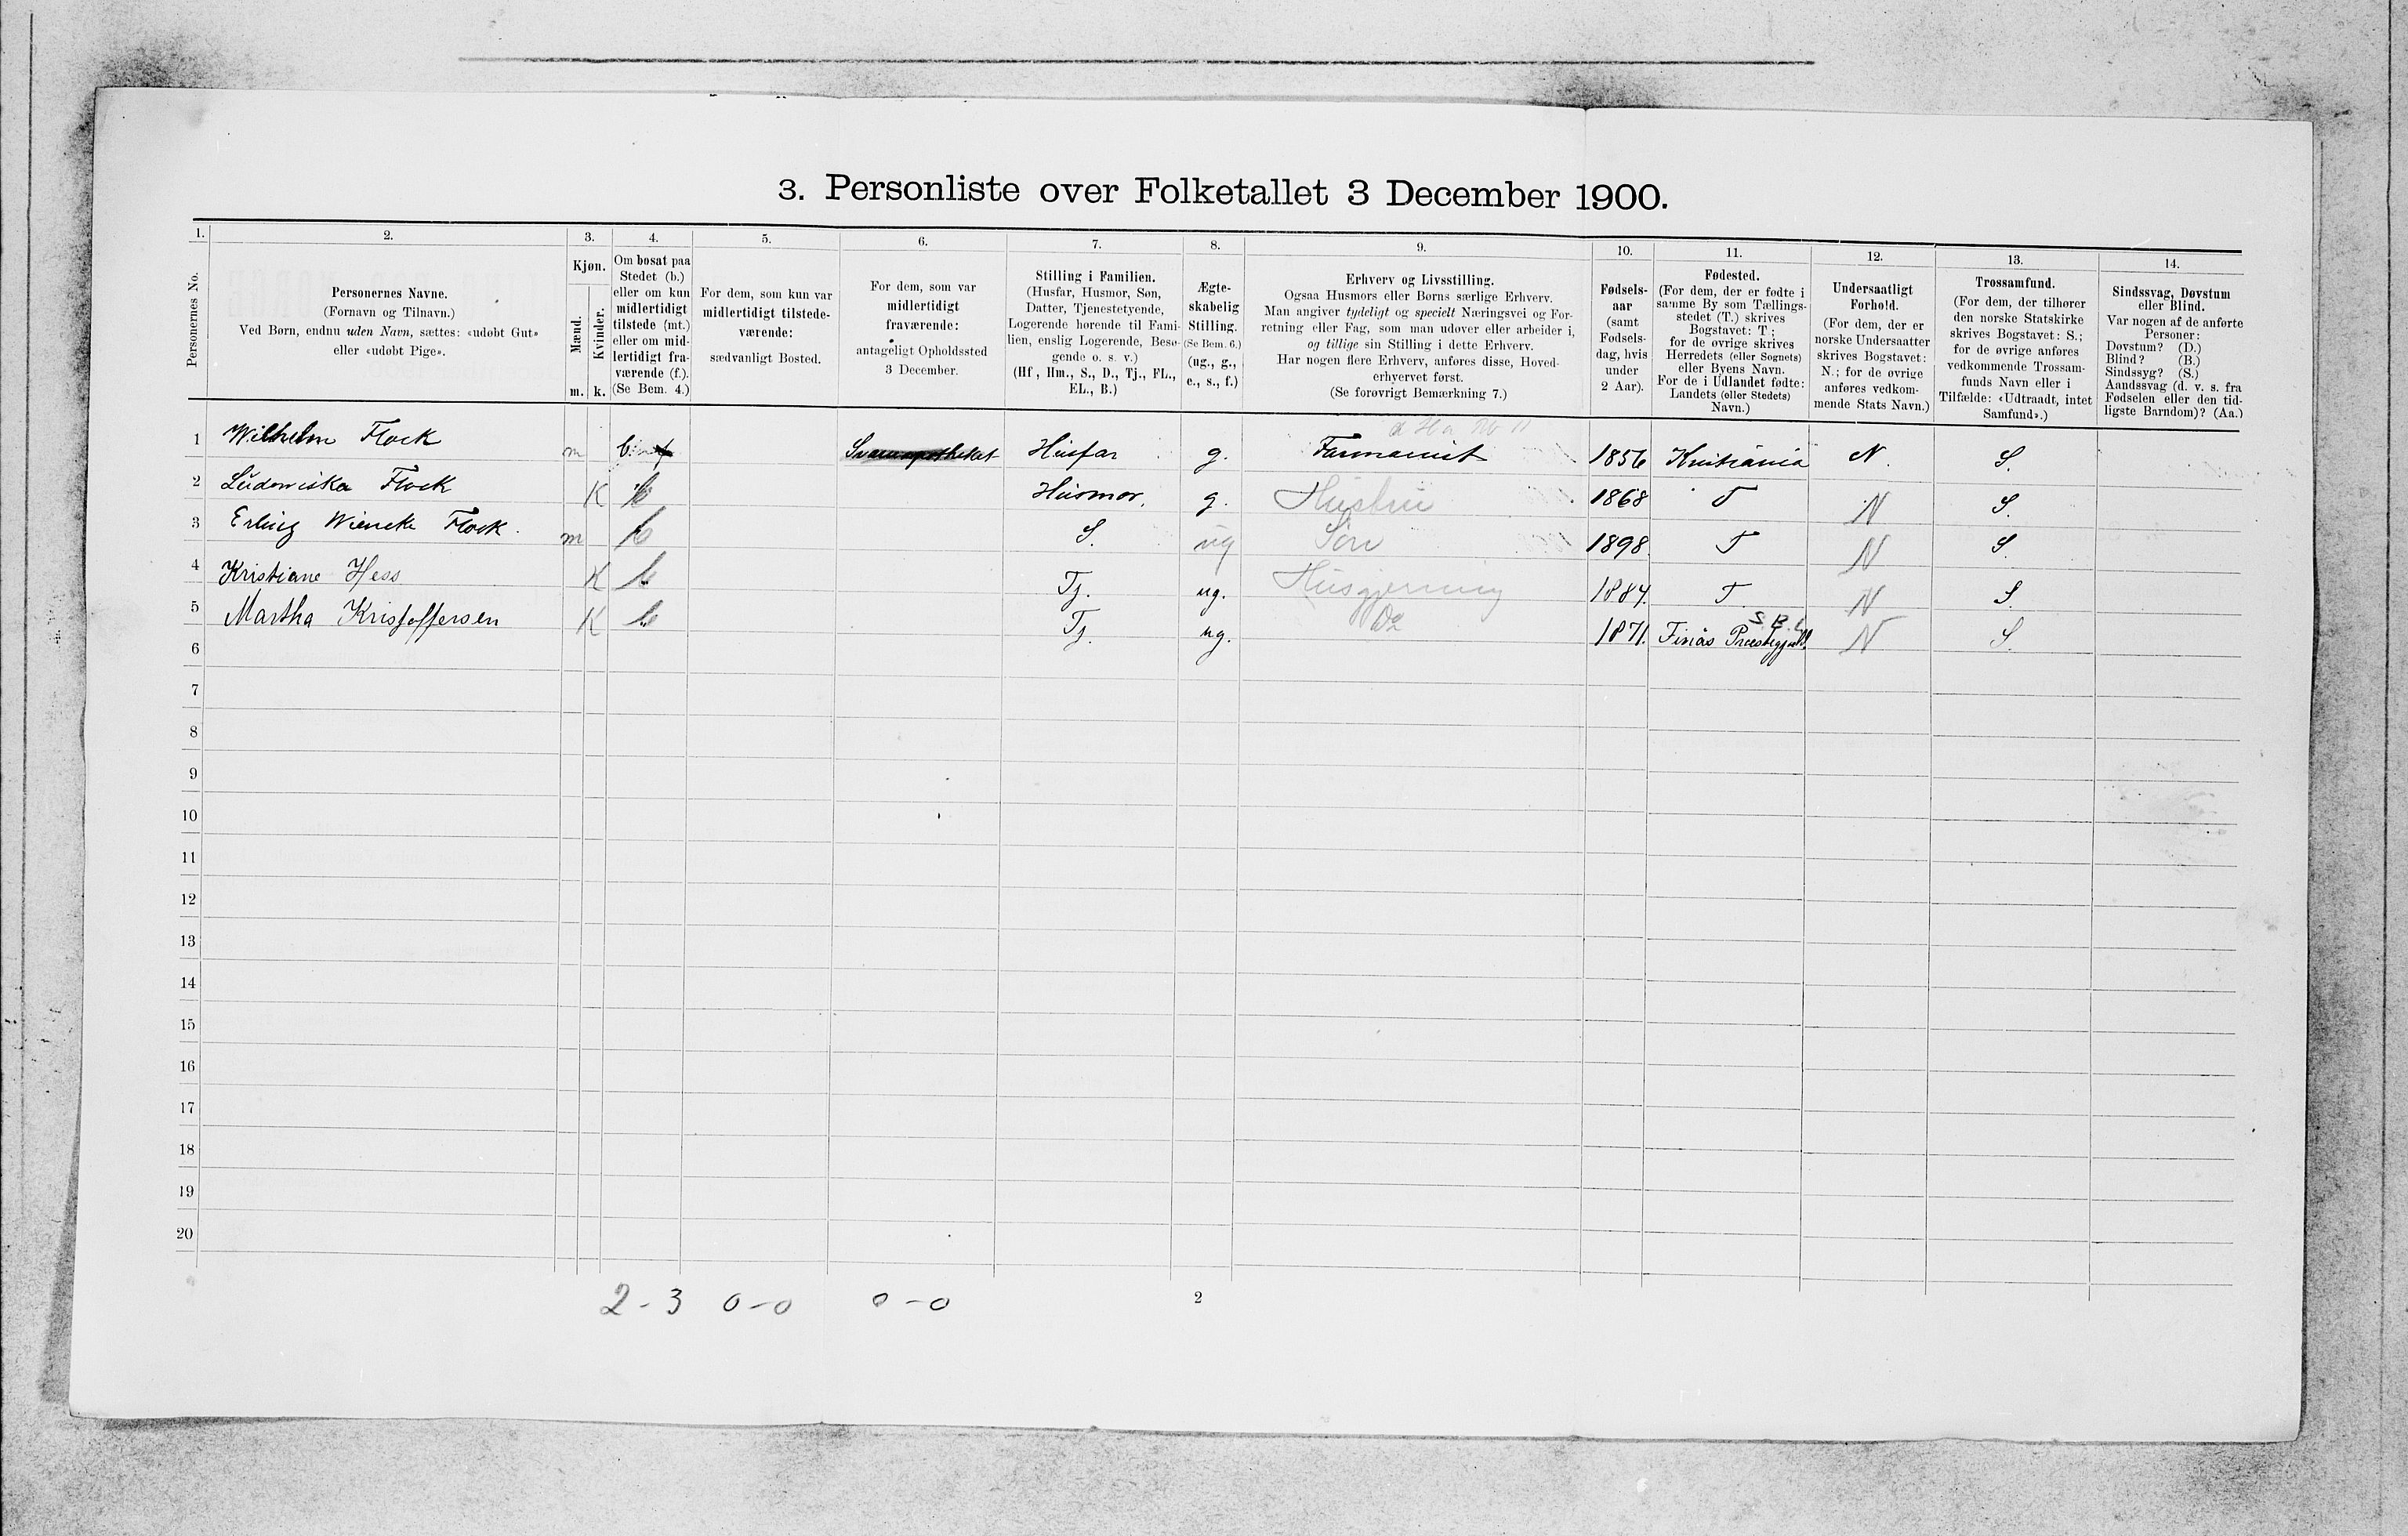 3. Personliste over Folketallet 3 December 1900.
1. 2. 3. 4. 5. 6. 7. 8. 9. 10. 11. 12. 13. 14.
Personernes No.
Personernes Navne.
(Fornavn og Tilnavn.)
Ved Børn, endnu uden Navn, sættes: «udøbt Gut»
eller «udøbt Pige».
Kjøn.
Mænd. Kvinder.
m. k.
Om bosat paa
Stedet (b.)
eller om kun
midlertidigt
tilstede (mt.)
eller om mid-
lertidigt fra-
værende (f.).
(Se Bem. 4.)
For dem, som kun var
midlertidigt tilstede-
værende:
sædvanligt Bosted.
For dem, som var
midlertidigt
fraværende:
antageligt Opholdssted
3 December.
Stilling i Familien.
(Husfar, Husmor, Søn,
Datter, Tjenestetyende,
Logerende hørende til Fami-
lien, enslig Logerende, Besø-
gende o. s. v.)
(Hf, Hm., S., D., Tj., FL.,
EL., B.)
Ægte-
skabelig
Stilling.
(Se Bem. 6.)
(ug., g.,
e., s., f.)
Erhverv og Livsstilling.
Ogsaa Husmors eller Børns særlige Erhverv.
Man angiver tydeligt og specielt Næringsvei og For-
retning eller Fag, som man udøver eller arbeider i,
og tillige sin Stilling i dette Erhverv.
Har nogen flere Erhverv, anføres disse, Hoved-
erhvervet først.
(Se forøvrigt Bemærkning 7.)
Fødsels-
aar
(samt
Fødsels-
dag, hvis
under
2 Aar).
Fødested.
(For dem, der er fødte i
samme By som Tællings-
stedet (T.) skrives
Bogstavet: T;
for de øvrige skrives
Herredets (eller Sognets)
eller Byens Navn.
For de i Udlandet fødte:
Landets (eller Stedets)
Navn.)
Undersaatligt
Forhold.
(For dem, der er
norske Undersaatter
skrives Bogstavet:
N.; for de øvrige
anføres vedkom-
mende Stats Navn.)
Trossamfund.
(For dem, der tilhører
den norske Statskirke
skrives Bogstavet: S.;
for de øvrige anføres
vedkommende Trossam-
funds Navn eller i
Tilfælde: «Udtraadt, intet
Samfund».)
Sindssvag, Døvstum
eller Blind.
Var nogen af de anførte
Personer:
Døvstum? (D.)
Blind? (B.)
Sindssyg? (S.)
Aandssvag (d. v. s. fra
Fødselen eller den tid-
ligste Barndom)? (Aa.)
1 Wilhelm Flock m b Svaneapotheket Husfar g. Farmaceut 1856 Kristiania N. S.
2 Ludowiska Flock K b Husmor. g. Hustru 1868 T N S.
3 Erling Wiencke Flock. m b S. ug Søn 1898. T N S.
4 Kristiane Hess K b Tj. ug. Husgjerning 1884. T N S.
5 Martha Kristoffersen K b Tj. ug. Do 1871. Finås Præstegjeld. S. B. N S.
6
7
8
9
10
11
12
13
14
15
16
17
18
19
20
2-3 0-0 0-0
2